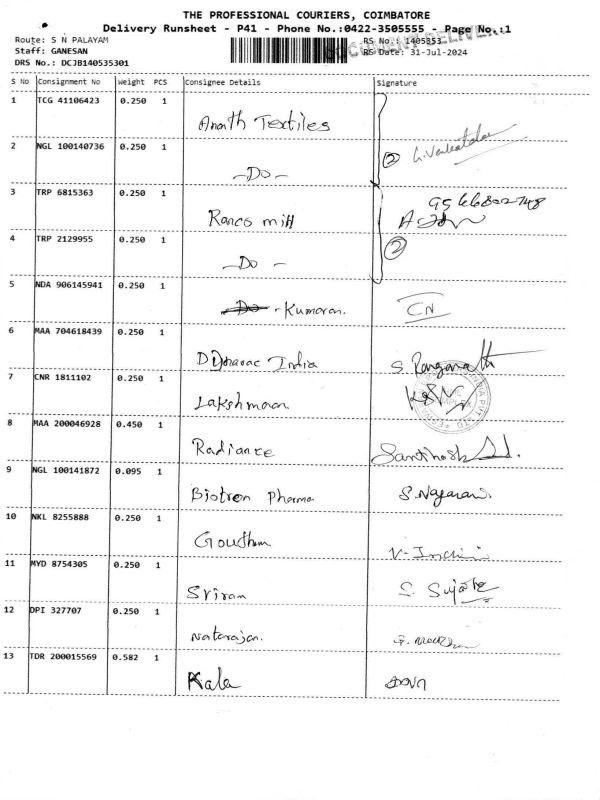 THE PROFESSIONAL COURIERS, COIMBATORE
Delivery Runsheet - P41 - Phone No.:0422-3505555 - Page No.:1
Route: S N PALAYAM
RS No.: 1405353
Staff: GANESAN
RS Date: 31-Jul-2024
DRS No.: DCJB140535301
S No Consignment No Weight PCS Consignee Details Signature
1 TCG 41106423 0.250 1
Ananth Textiles
2 NGL 100140736 0.250 1
② G. Venkatachalam
-Do-
3 TRP 6815363 0.250 1
9566802748
Ranes mill
4 TRP 2129955 0.250 1
②
-Do-
5 NDA 906145941 0.250 1
Do - Kumaran.
CN
6 MAA 704618439 0.250 1
India
S. Ranganath
7 CNR 1811102 0.250 1
Lakshmanan
8 MAA 200046928 0.450 1
Radiance
Santhosh
9 NGL 100141872 0.095 1
Biotron Pharma
S. Nagarani.
10 NKL 8255888 0.250 1
Goutham
V-
11 MYD 8754305 0.250 1
Sriram
S. Sujatha
12 DPI 327707 0.250 1
Natarajan.
13 TDR 200015569 0.582 1
Kala